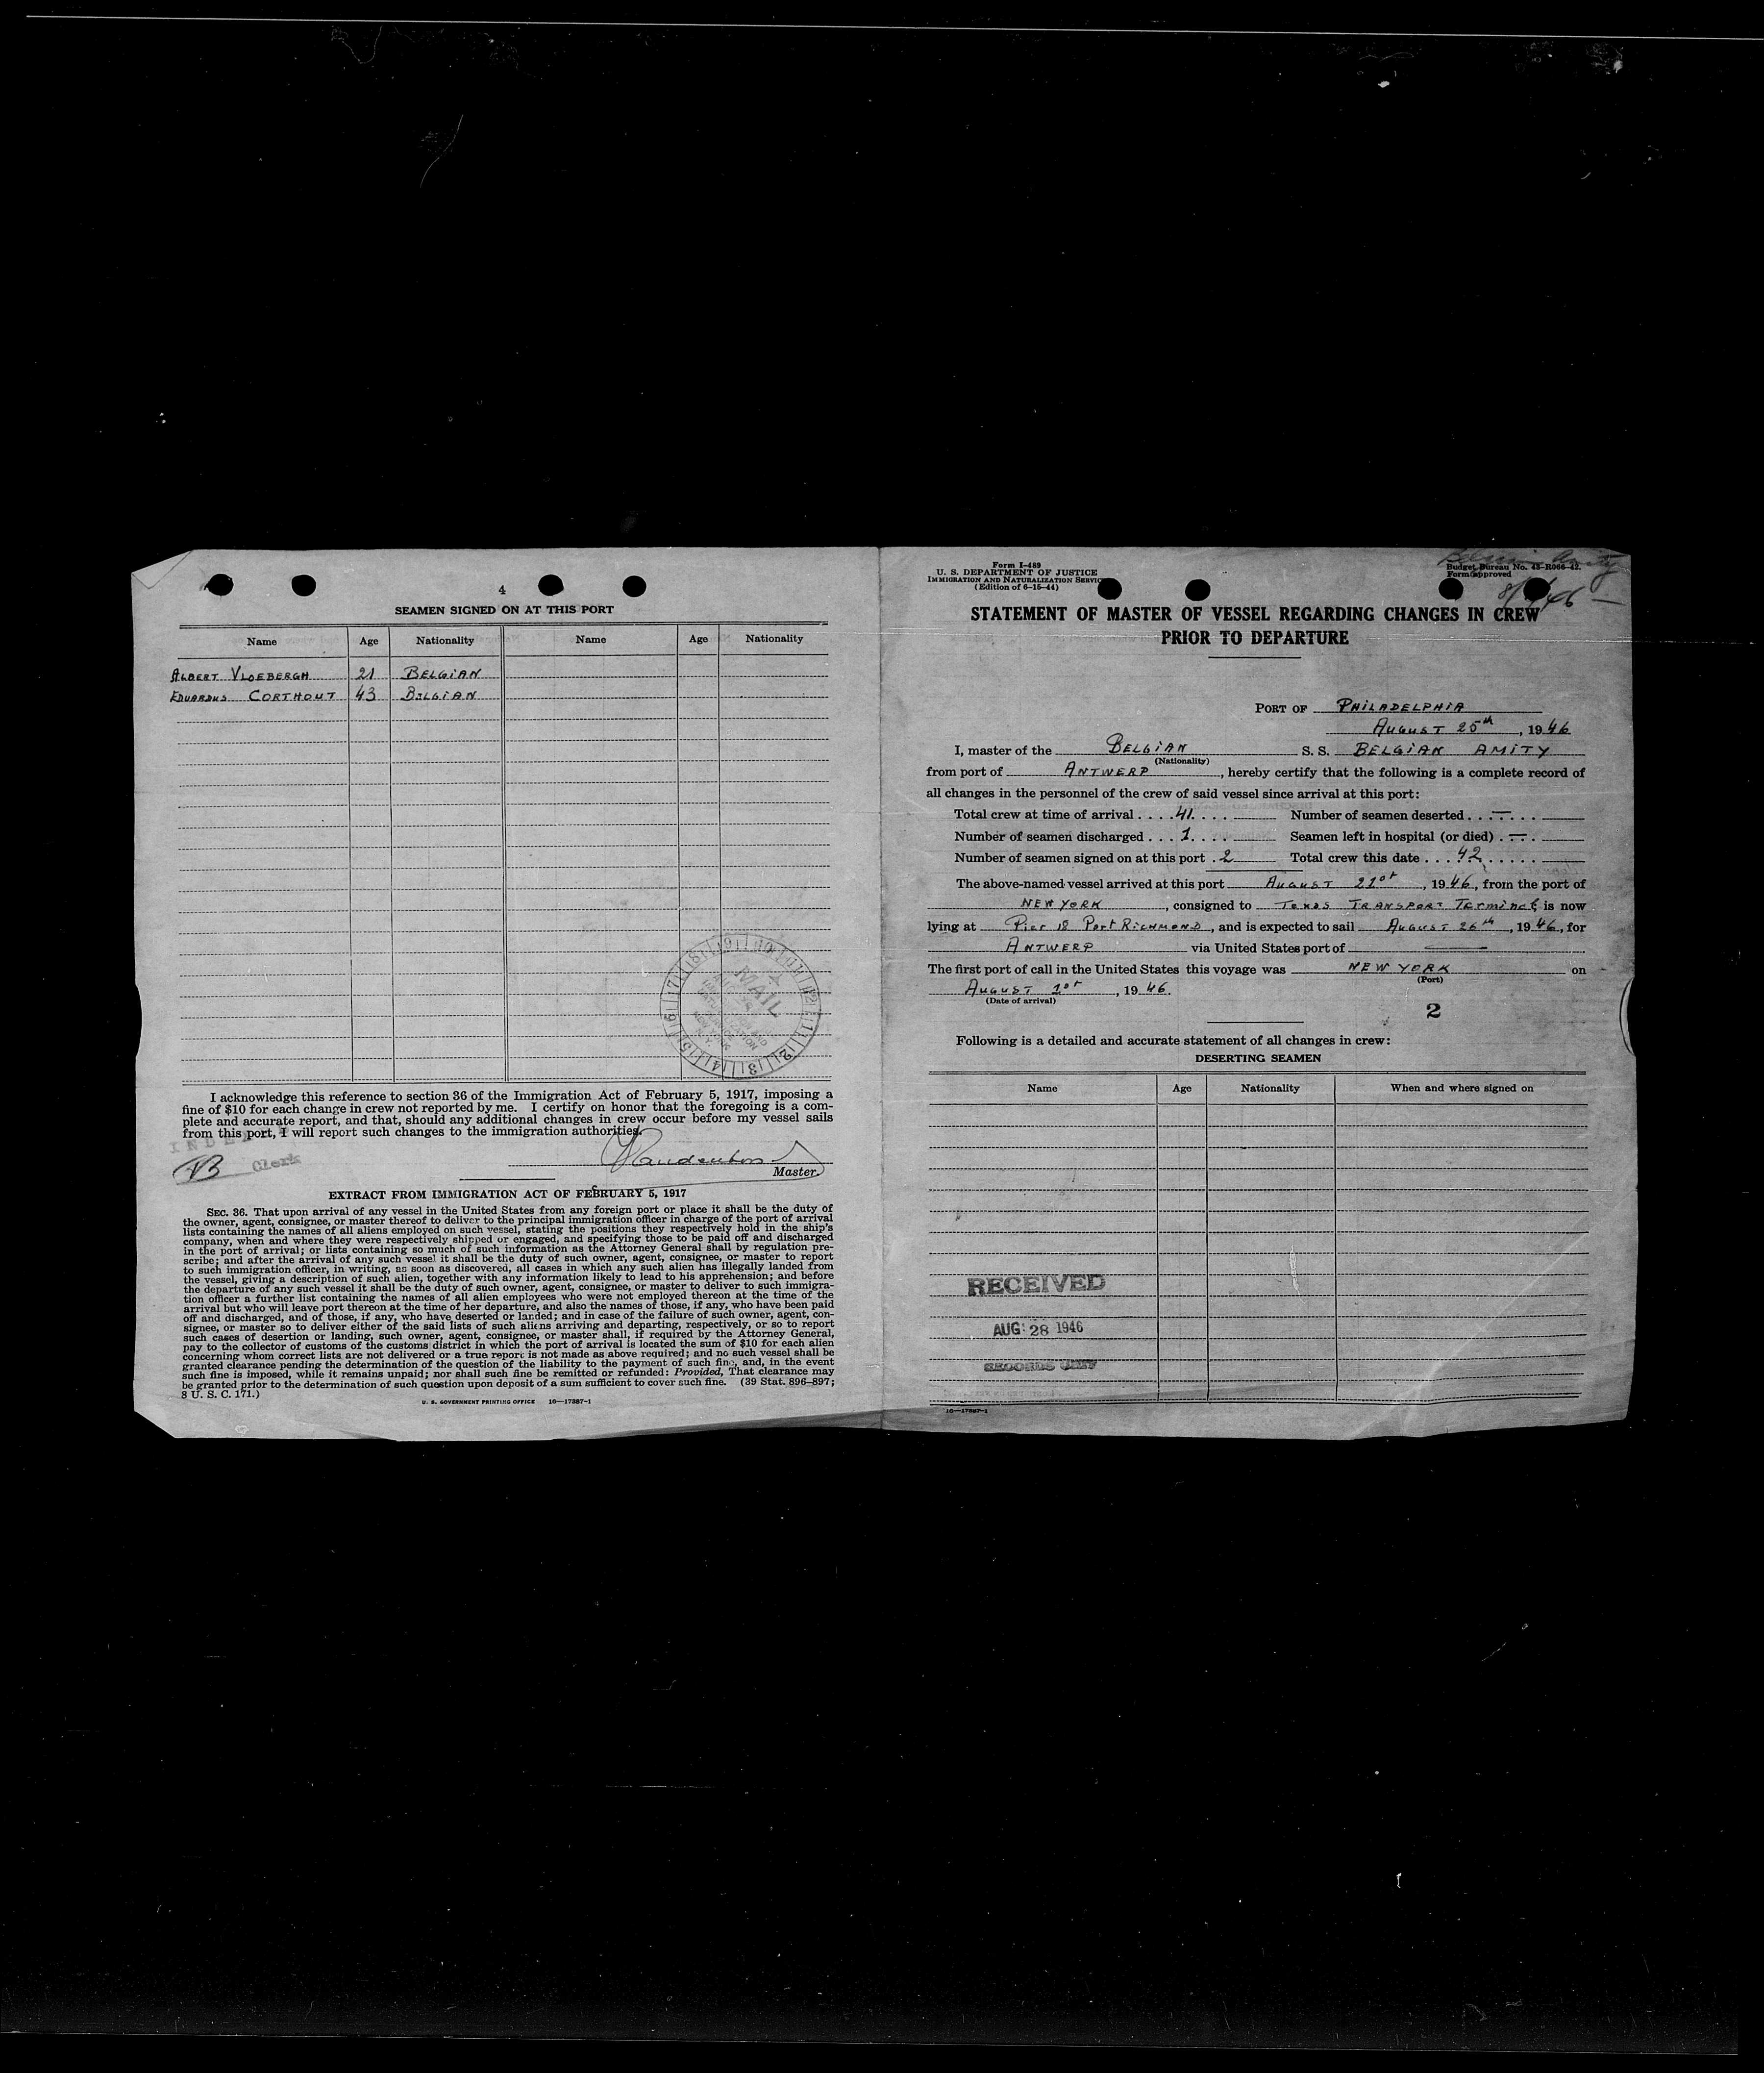 4
SEAMEN SIGNED ON AT THIS PORT
Name Age Nationality Name Age Nationality
ALBERT VLOEBERGH 21 BELGIAN
EDUARDUS CORTHOUT 43 BELGIAN
MAIL
I acknowledge this reference to section 36 of the Immigration Act of February 5, 1917, imposing a
fine of $10 for each change in crew not reported by me. I certify on honor that the foregoing is a com-
plete and accurate report, and that, should any additional changes in crew occur before my vessel sails
from this port, I will report such changes to the immigration authorities.
Clerk
Master.
EXTRACT FROM IMMIGRATION ACT OF FEBRUARY 5, 1917
SEC. 36. That upon arrival of any vessel in the United States from any foreign port or place it shall be the duty of
the owner, agent, consignee, or master thereof to deliver to the principal immigration officer in charge of the port of arrival
lists containing the names of all aliens employed on such vessel, stating the positions they respectively hold in the ship's
company, when and where they were respectively shipped or engaged, and specifying those to be paid off and discharged
in the port of arrival; or lists containing so much of such information as the Attorney General shall by regulation pre-
scribe; and after the arrival of any such vessel it shall be the duty of such owner, agent, consignee, or master to report
to such immigration officer, in writing, as soon as discovered, all cases in which any such alien has illegally landed from
the vessel, giving a description of such alien, together with any information likely to lead to his apprehension; and before
the departure of any such vessel it shall be the duty of such owner, agent, consignee, or master to deliver to such immigra-
tion officer a further list containing the names of all alien employees who were not employed thereon at the time of the
arrival but who will leave port thereon at the time of her departure, and also the names of those, if any, who have been paid
off and discharged, and of those, if any, who have deserted or landed; and in case of the failure of such owner, agent, con-
signee, or master so to deliver either of the said lists of such aliens arriving and departing, respectively, or so to report
such cases of desertion or landing, such owner, agent, consignee, or master shall, if required by the Attorney General,
pay to the collector of customs of the customs district in which the port of arrival is located the sum of $10 for each alien
concerning whom correct lists are not delivered or a true report is not made as above required; and no such vessel shall be
granted clearance pending the determination of the question of the liability to the payment of such fine, and, in the event
such fine is imposed, while it remains unpaid; nor shall such fine be remitted or refunded: Provided, That clearance may
be granted prior to the determination of such question upon deposit of a sum sufficient to cover such fine. (39 Stat. 896–897;
8 U. S. C. 171.)
U. S. GOVERNMENT PRINTING OFFICE 16—17387-1
Form I-489
U. S. DEPARTMENT OF JUSTICE
IMMIGRATION AND NATURALIZATION SERVICE
(Edition of 6-15-44)
Budget Bureau No. 43-R066-42.
Form approved
STATEMENT OF MASTER OF VESSEL REGARDING CHANGES IN CREW
PRIOR TO DEPARTURE
PORT OF PHILADELPHIA
AUGUST 25th, 1946
I, master of the BELGIAN S. S. BELGIAN AMITY
(Nationality)
from port of ANTWERP, hereby certify that the following is a complete record of
all changes in the personnel of the crew of said vessel since arrival at this port:
Total crew at time of arrival . . . . 41 . . . . Number of seamen deserted . . . — . . . .
Number of seamen discharged . . . 1 . . . . Seamen left in hospital (or died) . — .
Number of seamen signed on at this port . 2 Total crew this date . . . 42 . . . . .
The above-named vessel arrived at this port AUGUST 21st, 1946, from the port of
NEW YORK, consigned to Texas TRANSPORT Terminal is now
lying at Pier 18 Port RICHMOND, and is expected to sail AUGUST 26th, 1946, for
ANTWERP via United States port of —
The first port of call in the United States this voyage was NEW YORK on
(Port)
AUGUST 1st, 1946.
(Date of arrival)
2
Following is a detailed and accurate statement of all changes in crew:
DESERTING SEAMEN
Name Age Nationality When and where signed on
RECEIVED
AUG 28 1946
RECORDS UNIT
16—17387-1